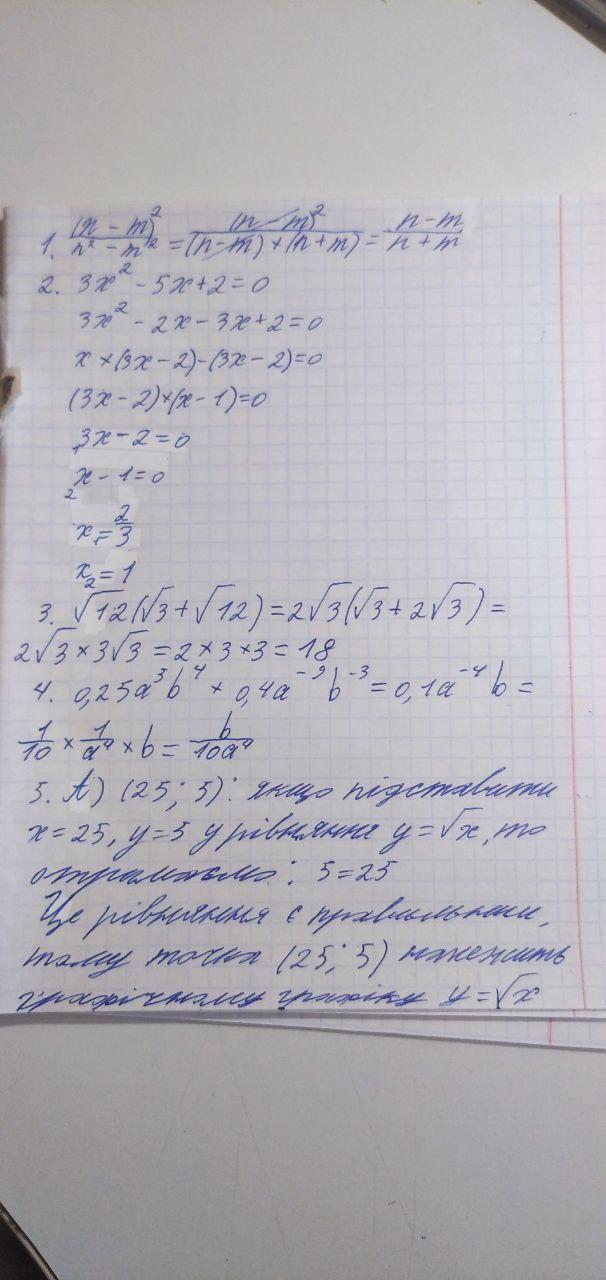 1. (n - m)² / n² - m² = (n - m)² / (n - m) × (n + m) = n - m / n + m
2. 3x² - 5x + 2 = 0
3x² - 2x - 3x + 2 = 0
x × (3x - 2) - (3x - 2) = 0
(3x - 2) × (x - 1) = 0
₁3x - 2 = 0
₂x - 1 = 0
x₁ = 2/3
x₂ = 1
3. √12(√3 + √12) = 2√3(√3 + 2√3) =
2√3 × 3√3 = 2 × 3 × 3 = 18
4. 0,25a³b⁴ × 0,4a⁻⁹b⁻³ = 0,1a⁻⁴b =
1/10 × 1/a⁴ × b = b/10a⁴
5. А) (25; 5): якщо підставити
x = 25, y = 5 у рівняння y = √x, то
отримаємо: 5 = 25
Це рівняння є правильним,
тому точка (25; 5) належить
графічному графіку y = √x